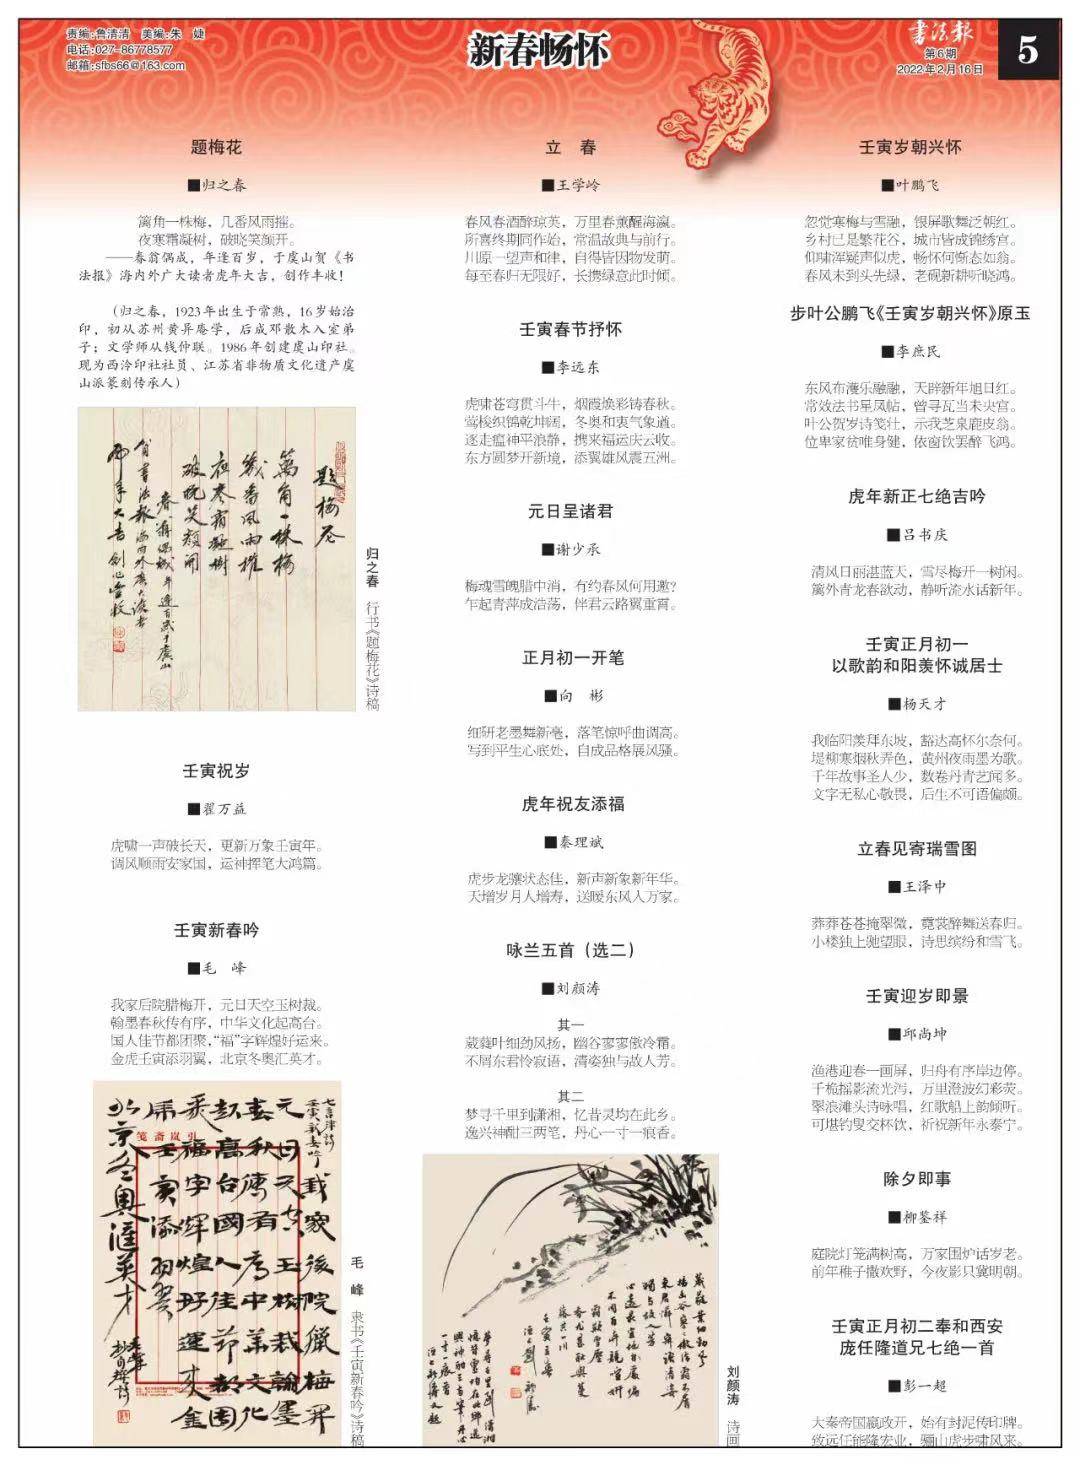 责编:鲁清清　美编:朱　婕
电话:027-86778577
邮箱:sfbs66@163.com
新春畅怀
书法报
第6期
2022年2月16日
5
题梅花
■归之春
篱角一株梅，几番风雨摧。
夜寒霜凝树，破晓笑颜开。
——春翁偶成，年逢百岁，于虞山贺《书
法报》海内外广大读者虎年大吉，创作丰收！
（归之春，1923年出生于常熟，16岁始治
印，初从苏州黄异庵学，后成邓散木入室弟
子；文学师从钱仲联。1986年创建虞山印社。
现为西泠印社社员、江苏省非物质文化遗产虞
山派篆刻传承人）
题梅花
篱角一株梅
几番风雨摧
夜寒霜凝树
破晓笑颜开
春翁偶成年逢百岁于虞山
贺书法报海内外广大读者
虎年大吉创作丰收
归之春　行书《题梅花》诗稿
壬寅祝岁
■翟万益
虎啸一声破长天，更新万象壬寅年。
调风顺雨安家国，运神挥笔大鸿篇。
壬寅新春吟
■毛　峰
我家后院腊梅开，元日天空玉树裁。
翰墨春秋传有序，中华文化起高台。
国人佳节都团聚，“福”字辉煌好运来。
金虎壬寅添羽翼，北京冬奥汇英才。
七言律诗
壬寅新春吟
我家後院臘梅開
元日天空玉樹裁翰墨
春秋傳有序中華文化
起高台國人佳節都團
聚福字輝煌好運來金
虎壬寅添羽翼
北京冬奥匯英才
引嵐斋笺
毛　峰　隶书《壬寅新春吟》诗稿
立　春
■王学岭
春风春酒醉琼英，万里春薰醒海瀛。
所喜终期同作始，常温故典与前行。
川原一望声和律，自得皆因物发萌。
每至春归无限好，长携绿意此时倾。
壬寅春节抒怀
■李远东
虎啸苍穹贯斗牛，烟霞焕彩铸春秋。
莺梭织锦乾坤阔，冬奥和衷气象道。
逐走瘟神平浪静，携来福运庆云收。
东方圆梦开新境，添翼雄风震五洲。
元日呈诸君
■谢少承
梅魂雪魄腊中消，有约春风何用邀？
乍起青萍成浩荡，伴君云路翼重霄。
正月初一开笔
■向　彬
细研老墨舞新毫，落笔惊呼曲调高。
写到平生心底处，自成品格展风骚。
虎年祝友添福
■秦理斌
虎步龙骧状态佳，新声新象新年华。
天增岁月人增寿，送暖东风入万家。
咏兰五首（选二）
■刘颜涛
其一
葳蕤叶细劲风扬，幽谷寥寥傲冷霜。
不屑东君怜寂语，清姿独与故人芳。
其二
梦寻千里到潇湘，忆昔灵均在此乡。
逸兴神酣三两笔，丹心一寸一痕香。
刘颜涛　诗画
壬寅岁朝兴怀
■叶鹏飞
忽觉寒梅与雪融，银屏歌舞泛朝红。
乡村已是繁花谷，城市皆成锦绣宫。
仰啸浑疑声似虎，畅怀何惭态如翁。
春风未到头先绿，老砚新耕听晓鸿。
步叶公鹏飞《壬寅岁朝兴怀》原玉
■李庶民
东风布濩乐融融，天辟新年旭日红。
常效法书星凤帖，曾寻瓦当未央宫。
叶公贺岁诗笺壮，示我芝泉鹿皮翁。
位卑家贫唯身健，依窗饮罢醉飞鸿。
虎年新正七绝吉吟
■吕书庆
清风日丽湛蓝天，雪尽梅开一树闲。
篱外青龙春欲动，静听流水话新年。
壬寅正月初一
以歌韵和阳羡怀诚居士
■杨天才
我临阳羡拜东坡，豁达高怀尔奈何。
堤柳寒烟秋弄色，黄州夜雨墨为歌。
千年故事圣人少，数卷丹青艺闻多。
文字无私心敬畏，后生不可语偏颇。
立春见寄瑞雪图
■王泽中
莽莽苍苍掩翠微，霓裳醉舞送春归。
小楼独上驰望眼，诗思缤纷和雪飞。
壬寅迎岁即景
■邱尚坤
渔港迎春一画屏，归舟有序岸边停。
千桅摇影流光泻，万里澄波幻彩荧。
翠浪滩头诗咏唱，红歌船上韵倾听。
可堪钓叟交杯饮，祈祝新年永泰宁。
除夕即事
■柳鉴祥
庭院灯笼满树高，万家围炉话岁老。
前年稚子撒欢野，今夜影只冀明朝。
壬寅正月初二奉和西安
庞任隆道兄七绝一首
■彭一超
大秦帝国嬴政开，始有封泥传印牌。
致远任能隆宏业，骊山虎步啸风来。